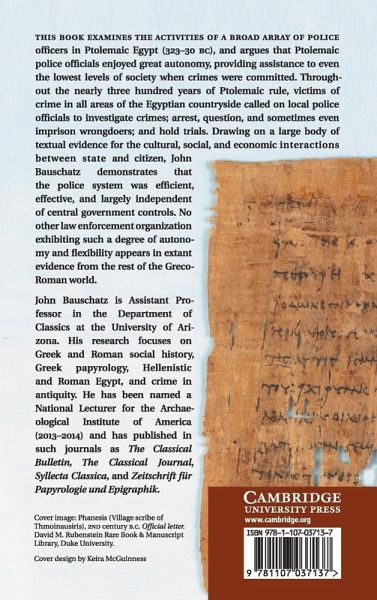 THIS BOOK EXAMINES THE ACTIVITIES OF A BROAD ARRAY OF POLICE
officers in Ptolemaic Egypt (323–30 BC), and argues that Ptolemaic
police officials enjoyed great autonomy, providing assistance to even
the lowest levels of society when crimes were committed. Through-
out the nearly three hundred years of Ptolemaic rule, victims of
crime in all areas of the Egyptian countryside called on local police
officials to investigate crimes; arrest, question, and sometimes even
imprison wrongdoers; and hold trials. Drawing on a large body of
textual evidence for the cultural, social, and economic interactions
between state and citizen, John
Bauschatz demonstrates that
the police system was efficient,
effective, and largely independent
of central government controls. No
other law enforcement organization
exhibiting such a degree of autono-
my and flexibility appears in extant
evidence from the rest of the Greco-
Roman world.
John Bauschatz is Assistant Pro-
fessor in the Department of
Classics at the University of Ari-
zona. His research focuses on
Greek and Roman social history,
Greek papyrology, Hellenistic
and Roman Egypt, and crime in
antiquity. He has been named a
National Lecturer for the Archae-
ological Institute of America
(2013–2014) and has published in
such journals as The Classical
Bulletin, The Classical Journal,
Syllecta Classica, and Zeitschrift für
Papyrologie und Epigraphik.
Cover image: Phanesis (Village scribe of
Thmoinausiris), 2ND century B.C. Official letter.
David M. Rubenstein Rare Book & Manuscript
Library, Duke University.
Cover design by Keira McGuinness
CAMBRIDGE
UNIVERSITY PRESS
www.cambridge.org
ISBN 978-1-107-03713-7
9 781107 037137 >